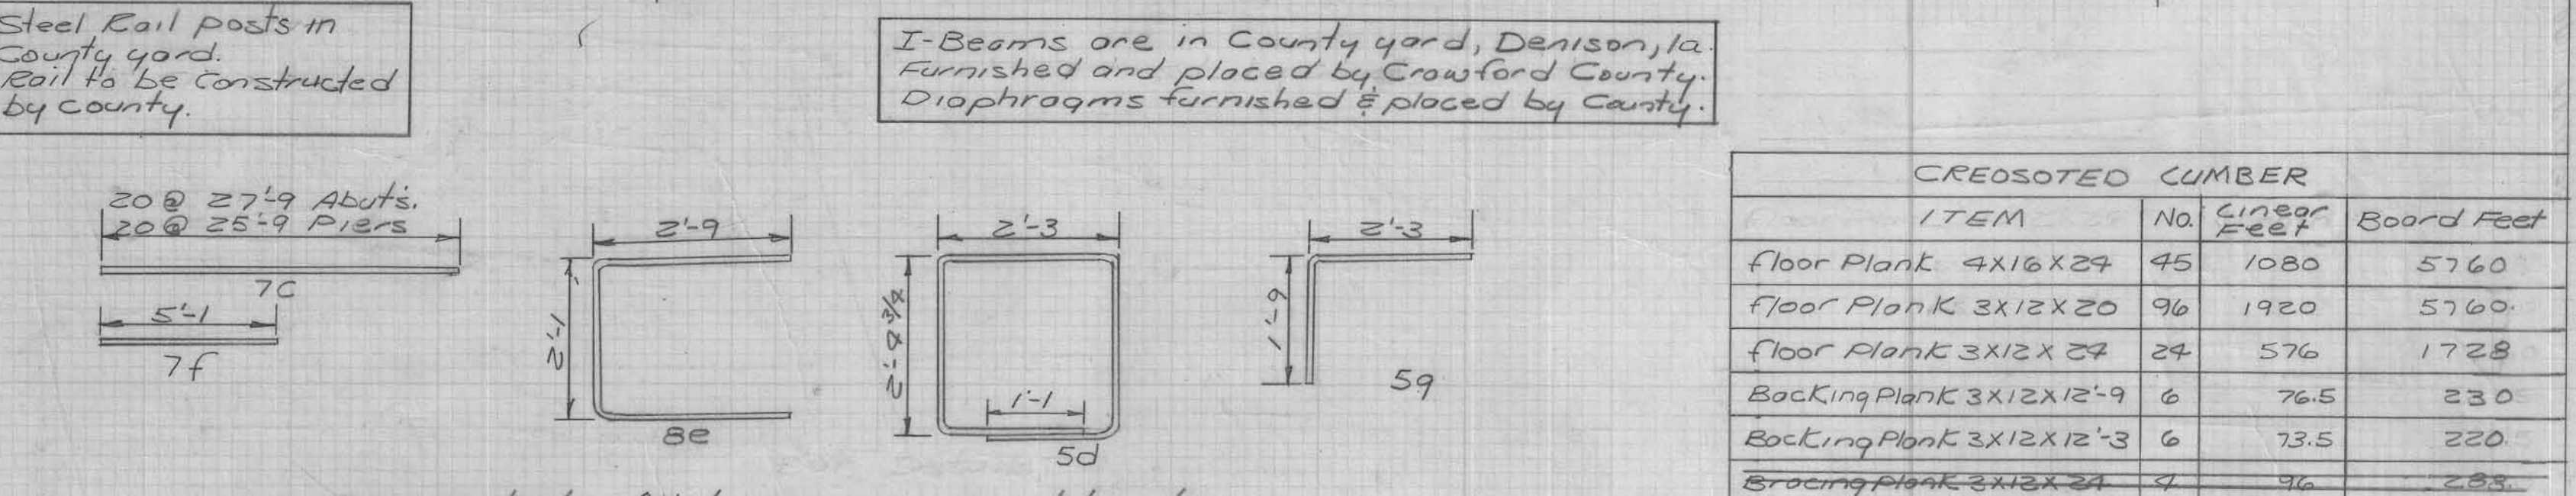 Steel Rail posts in
County yard.
Rail to be constructed
by county.
I-Beams are in County yard, Denison, Ia.
Furnished and placed by Crawford County.
Diaphragms furnished & placed by County.
20 @ 27'-9 Abut's.
20 @ 25'-9 Piers
7c
5'-1
7f
2'-9
2'-1
8e
2'-3
2'-4 3/4
1'-1
5d
2'-3
1'-9
5g
CREOSOTED LUMBER
ITEM No. Linear Feet Board Feet
floor Plank 4X16X24 45 1080 5760
floor Plank 3X12X20 96 1920 5760.
floor Plank 3X12X24 24 576 1728
Backing Plank 3X12X12'-9 6 76.5 230
Backing Plank 3X12X12'-3 6 73.5 220.
Bracing Plank 3X12X24 4 96 288.